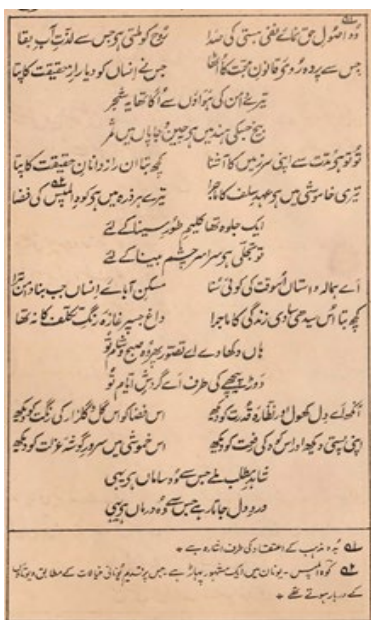 وہ اصول حق نمائے نفی ہستی کی صدا روح کو ملتی ہو جس سے لذت آب بقا
جس سے پردہ روئے قانون محبت کا اٹھا جس نے انساں کو دیا راز حقیقت کا پتا
تیرے دامن کی ہواؤں سے اگا تھا یہ شجر
بیخ جس کی ہند میں ہو چین و جاپاں میں ثمر
تو تو ہو مدت سے اپنی سرزمیں کا آشنا کچھ بتا ان رازدانان حقیقت کا پتا
تیری خاموشی میں ہو عہد سلف کا ماجرا تیرے ہر ذرہ میں ہو کوہ المپس۵۲ کی فضا
ایک جلوہ تھا کلیم طور سینا کے لئے
تو تجلی ہو سراسر چشم بینا کے لئے
اے ہمالہ داستاں اُسوقت کی کوئی سُنا مسکن آبائے انساں جب بنا دامن ترا
کچھ بتا اُس سیدھی سادی زندگی کا ماجرا داغ جسپر غازۂ رنگ تکلف کا نہ تھا
ہاں دکھا دے اے تصور پھر وہ صبح و شام تو
دوڑ پیچھے کی طرف اے گردش ایام تو
آنکھ اے دل کھول اور نظارۂ قدرت کو دیکھ اس فضا کو اس گل و گلزار کی رنگت کو دیکھ
اپنی پستی دیکھ اور اس کوہ کی رفعت کو دیکھ اس خموشی میں سرور گوشۂ عزلت کو دیکھ
شاہد مطلب ملے جس سے وہ ساماں ہو یہی
درد دل جاتا رہے جس سے وہ درماں ہو یہی
۵۱ بدھ مذہب کے اعتقاد کی طرف اشارہ ہے ۔
۵۲ کوہ المپس ۔ یونان میں ایک مشہور پہاڑ ہے ۔ جس پر قدیم یونانی خیالات کے مطابق دیوتاؤں
کے دربار ہوتے تھے ۔